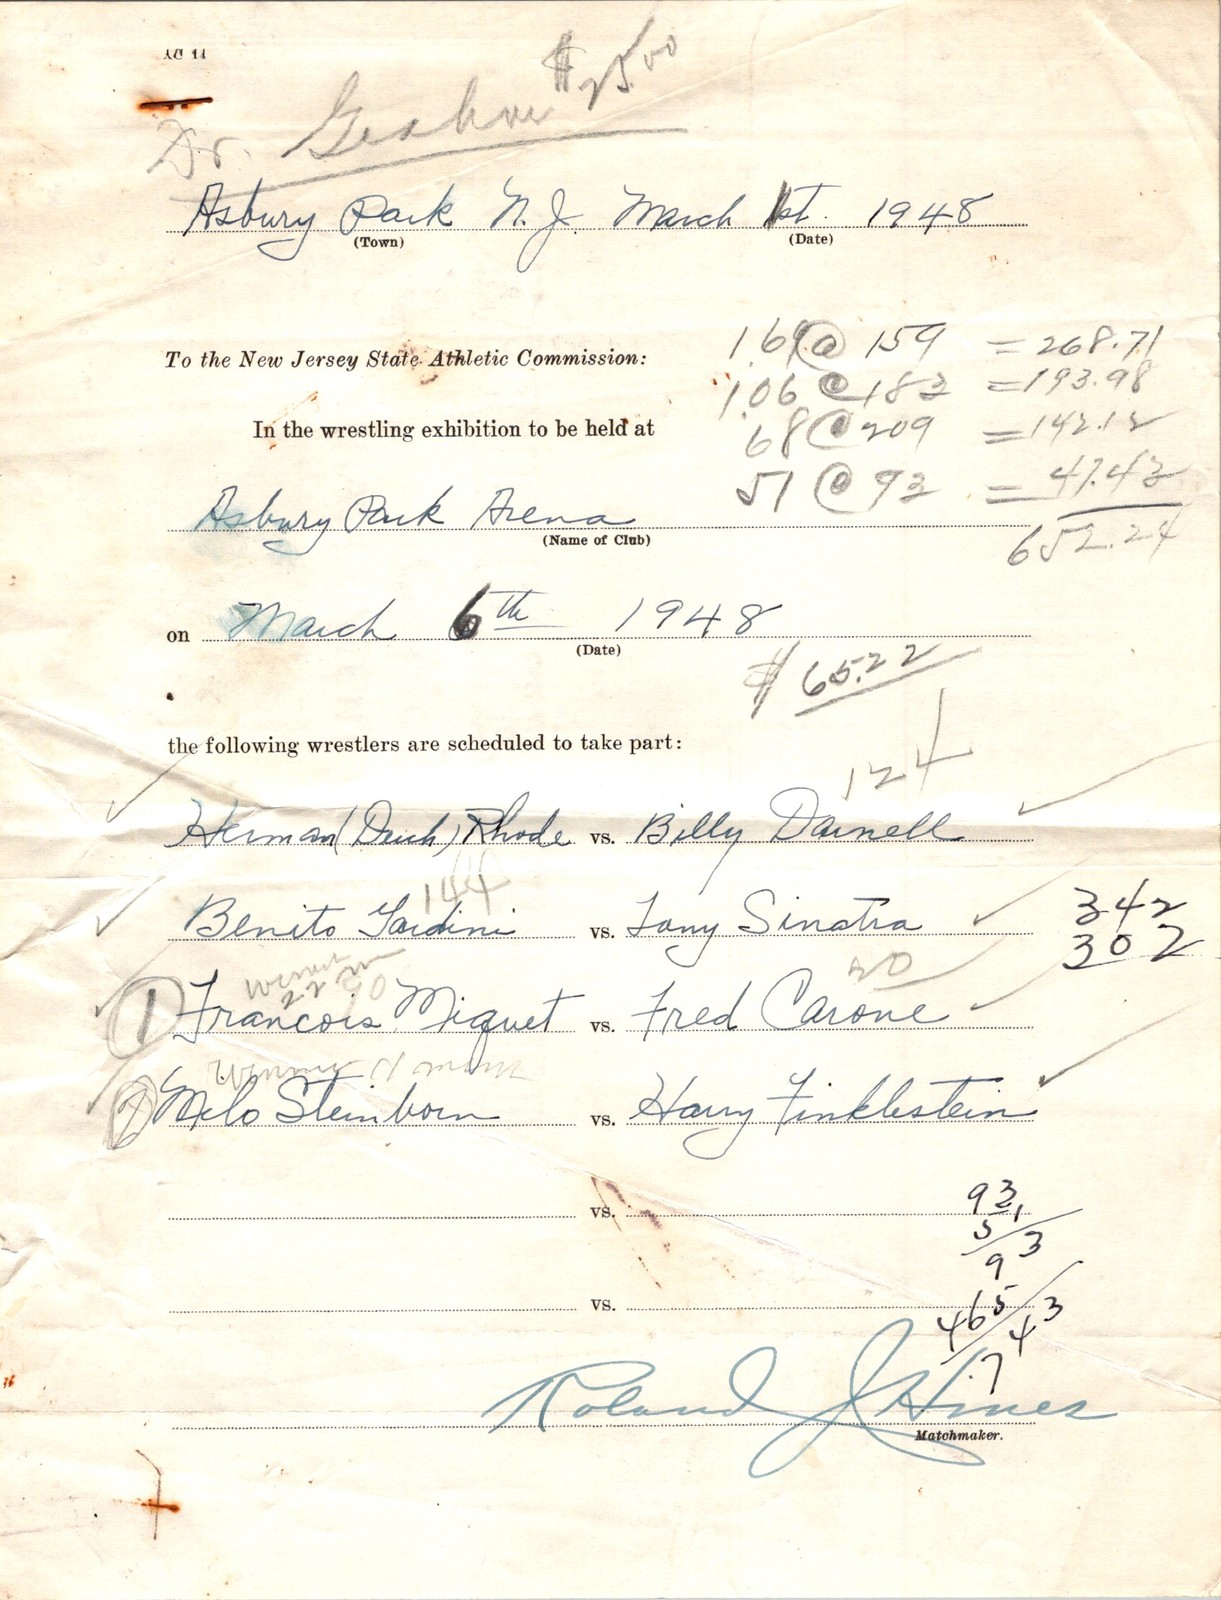 AC 14
$25.00
Dr.
Asbury Park N.J. March 1st. 1948
(Town) (Date)
To the New Jersey State Athletic Commission:
169 @ 159 = 268.71
106 @ 183 = 193.98
In the wrestling exhibition to be held at
68 @ 209 = 142.12
51 @ 93 = 47.43
652.24
Asbury Park Arena
(Name of Club)
on March 6th 1948
(Date)
$ 65.22
the following wrestlers are scheduled to take part:
124
Herman (Duch) Rhode vs. Billy Darnell
144
Benito Gardini vs. Tony Sinatra
342
302
Winner
22 20
20
1 Francois Miquet vs. Fred Carone
Winner
2 Milo Steinborn vs. Harry Finklestein
vs.
93
51
93
vs.
465
47 43
Roland J Hines
Matchmaker.